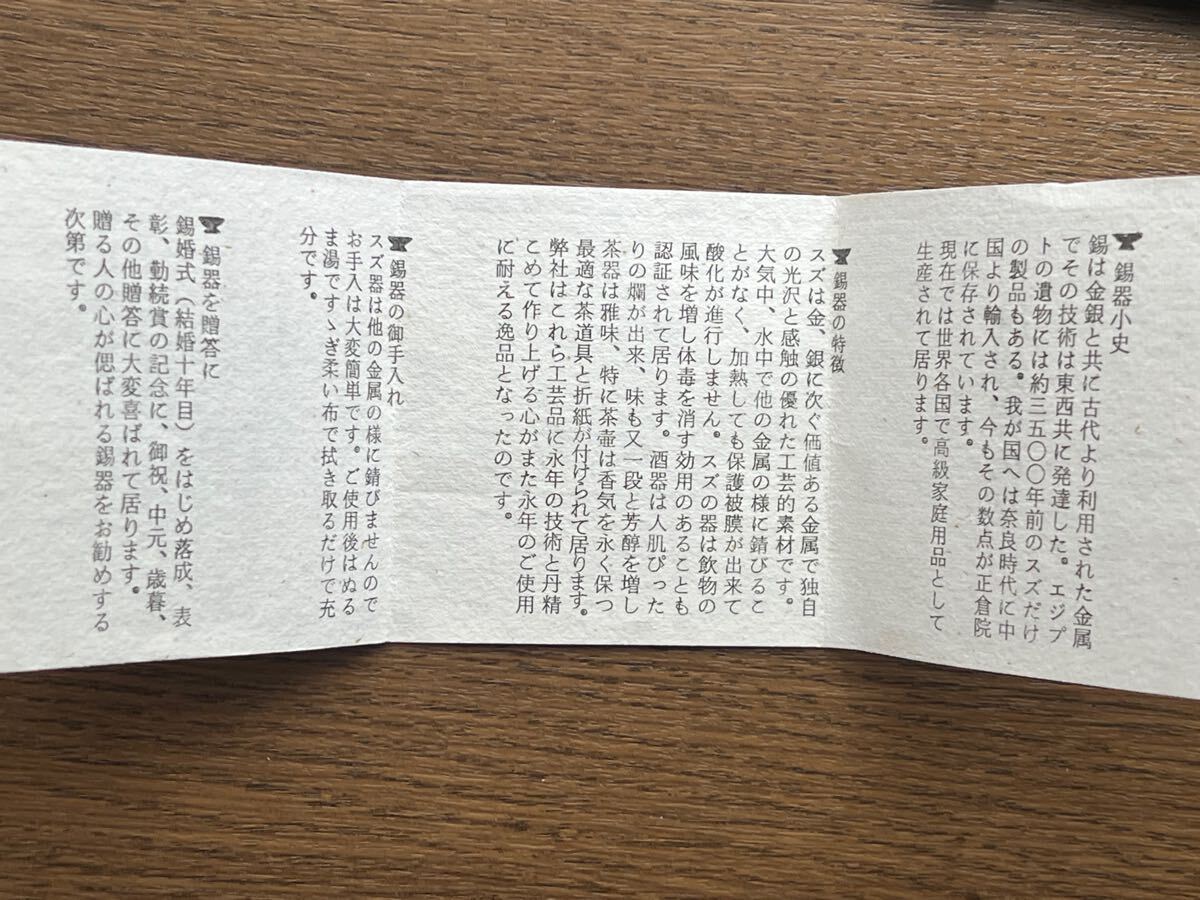 錫器小史
錫は金銀と共に古代より利用された金属
でその技術は東西共に発達した。エジプ
トの遺物には約三五〇〇年前のスズだけ
の製品もある。我が国へは奈良時代に中
国より輸入され、今もその数点が正倉院
に保存されています。
現在では世界各国で高級家庭用品として
生産されて居ります。
錫器の特徴
スズは金、銀に次ぐ価値ある金属で独自
の光沢と感触の優れた工芸的素材です。
大気中、水中で他の金属の様に錆びるこ
とがなく、加熱しても保護被膜が出来て
酸化が進行しません。スズの器は飲物の
風味を増し体毒を消す効用のあることも
認証されて居ります。酒器は人肌ぴった
りの爛が出来、味も又一段と芳醇を増し
茶器は雅味、特に茶壷は香気を永く保つ
最適な茶道具と折紙が付けられて居ります。
弊社はこれら工芸品に永年の技術と丹精
こめて作り上げる心がまた永年のご使用
に耐える逸品となったのです。
錫器の御手入れ
スズ器は他の金属の様に錆びませんので
お手入は大変簡単です。ご使用後はぬる
ま湯ですゝぎ柔い布で拭き取るだけで充
分です。
錫器を贈答に
錫婚式(結婚十年目)をはじめ落成、表
彰、勤続賞の記念に、御祝、中元、歳暮、
その他贈答に大変喜ばれて居ります。
贈る人の心が偲ばれる錫器をお勧めする
次第です。